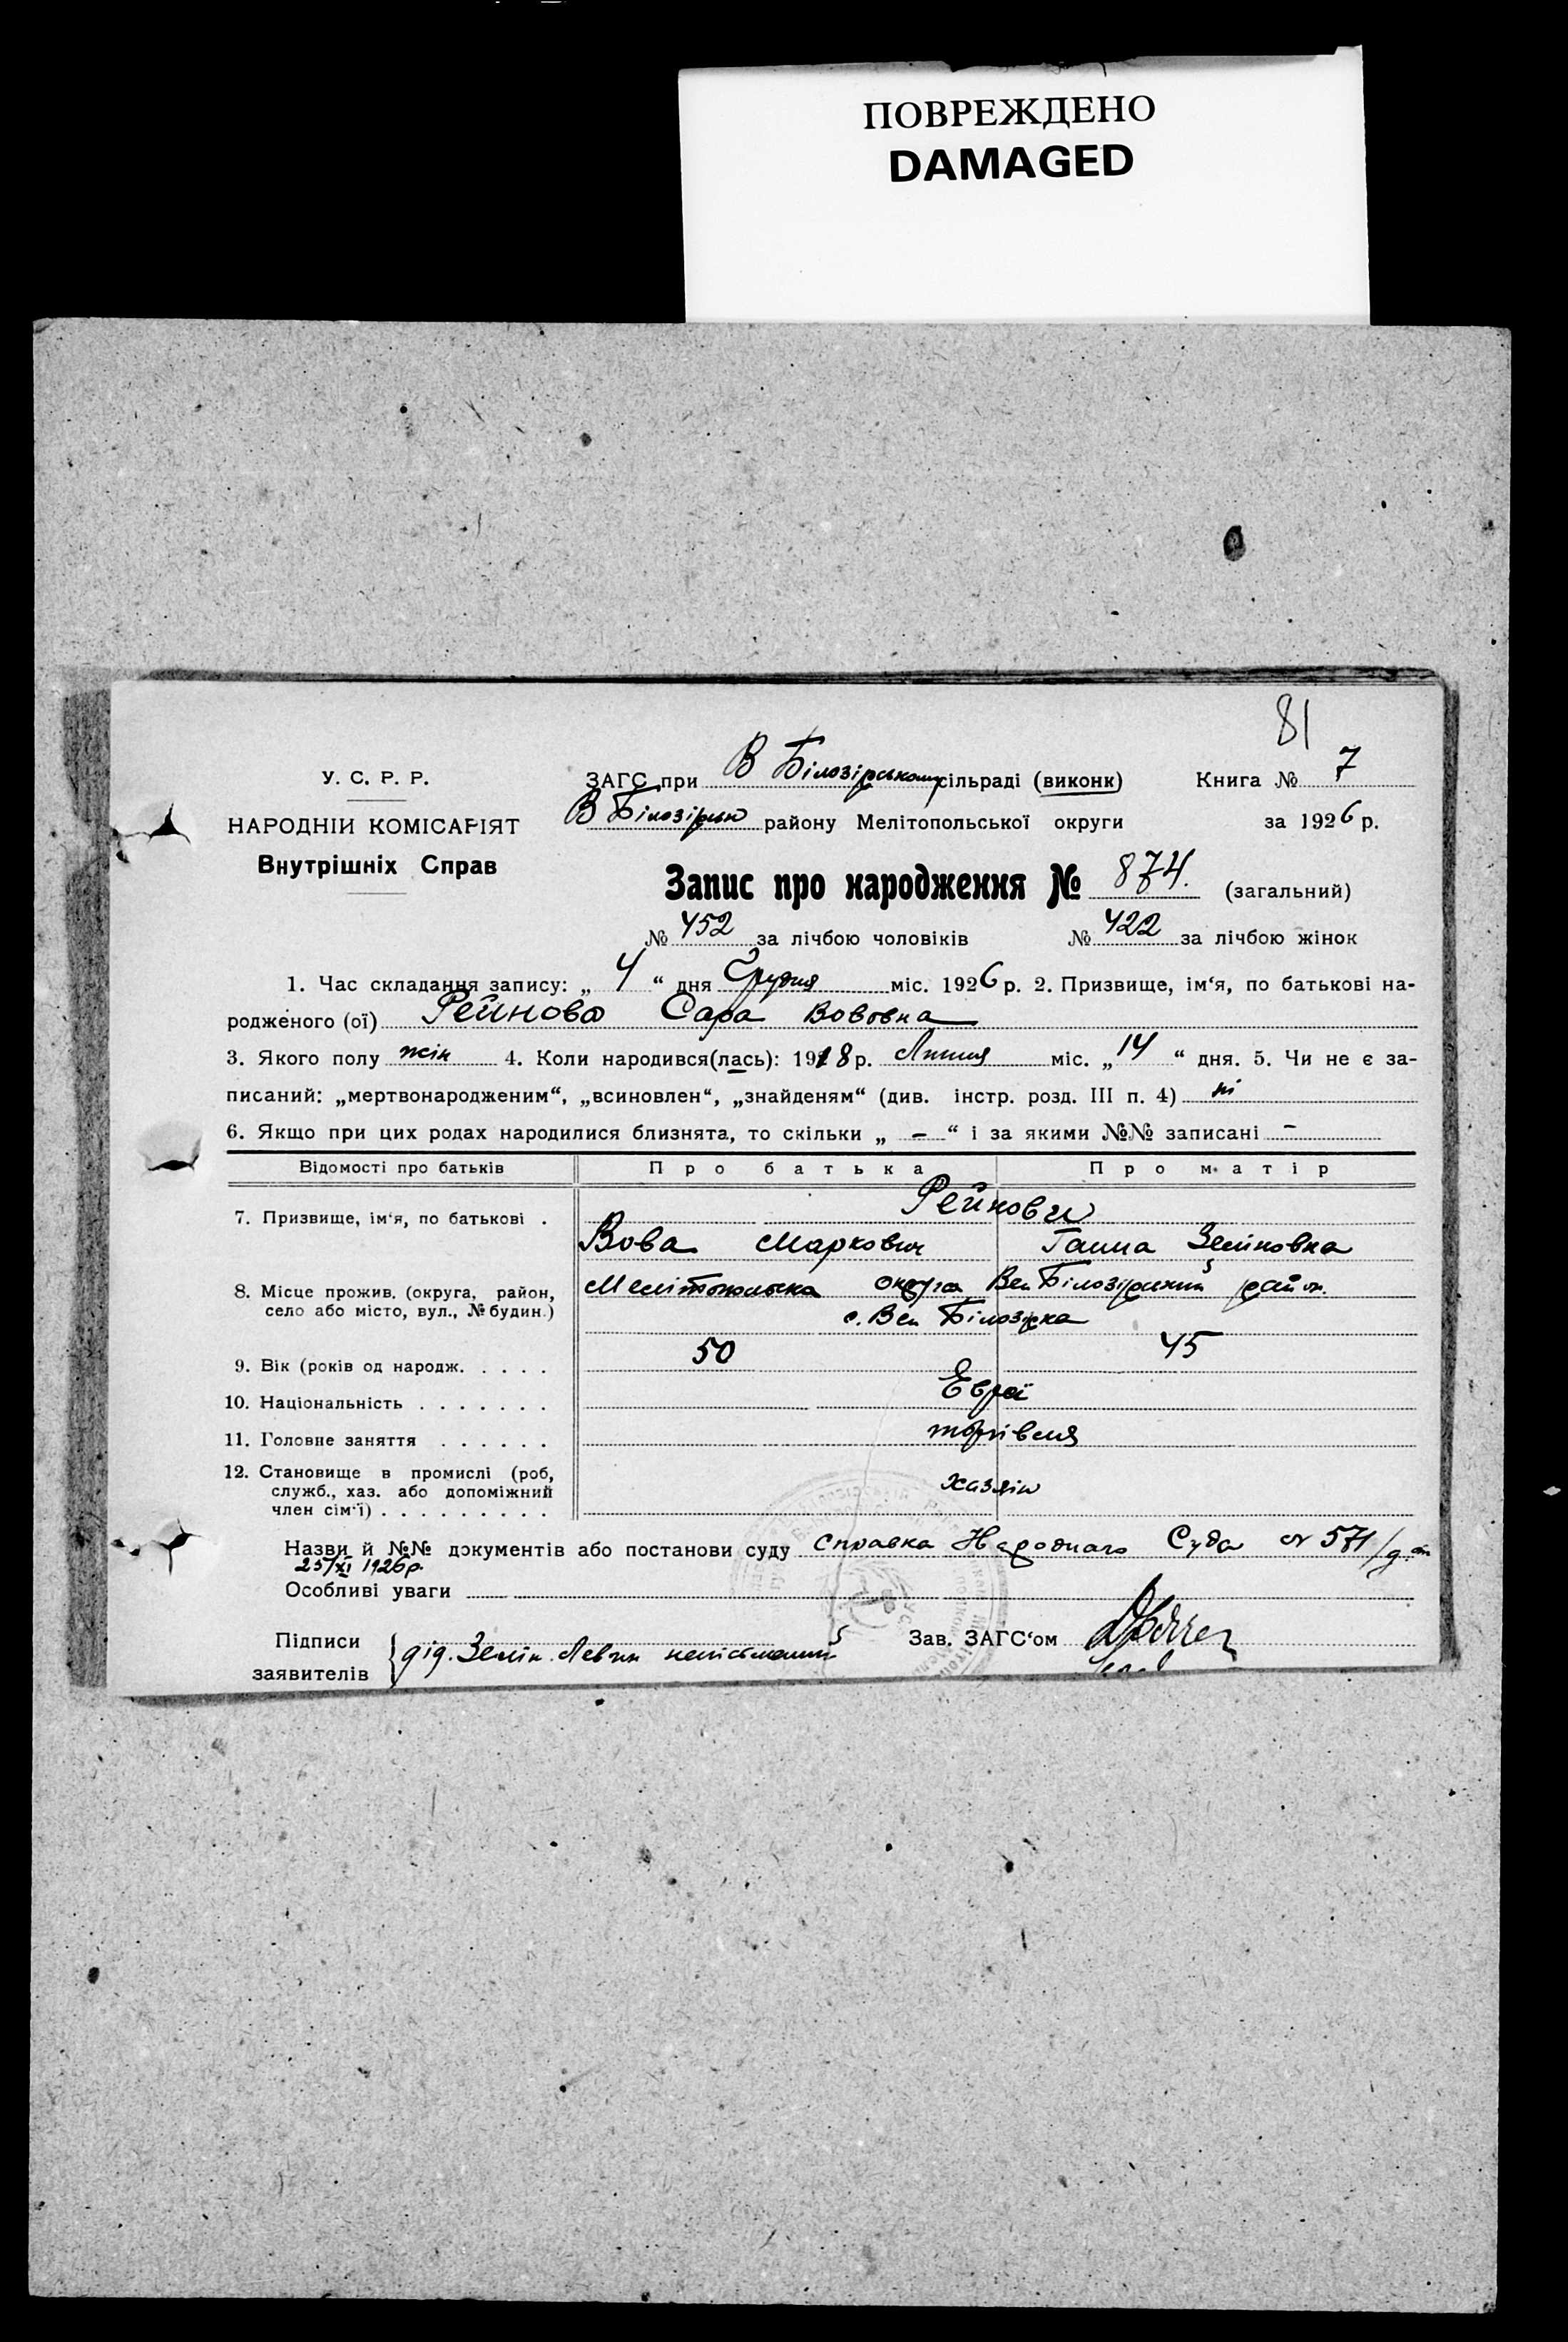 ПОВРЕЖДЕНО
DAMAGED
81
У. С. Р. Р.
ЗАГС при В Білозірському сільраді (виконк) Книга № 7
НАРОДНІЙ КОМІСАРІЯТ
В Білозірськ району Мелітопольської округи за 1926 р.
Внутрішніх Справ
Запис про народження № 874. (загальний)
№ 452 за лічбою чоловіків № 422 за лічбою жінок
1. Час складання запису: „ 4 “ дня Грудня міс. 1926 р. 2. Призвище, ім‘я, по батькові на-
родженого (ої) Рейнова Сара Вововна
3. Якого полу жін 4. Коли народився(лась): 1918 р. Липня міс. „ 14 “ дня. 5. Чи не є за-
писаний: „мертвонародженим“, „всиновлен“, „знайденям“ (див. інстр. розд. III п. 4) ні
6. Якщо при цих родах народилися близнята, то скільки „ – “ і за якими №№ записані –
Відомості про батьків Про батька Про матір
7. Призвище, ім‘я, по батькові . Рейнови
Вова Маркович Ганна Зелiновна
8. Місце прожив. (округа, район, село або місто, вул., № будин.) Мелітопольска округа Вел Білозірский район.
с. Вел Білозірка
9. Вік (років од народж. . . . . 50 45
10. Національність . . . . . . . Євреї
11. Головне заняття . . . . . . торгівля
12. Становище в промислі (роб, служб., хаз. або допоміжний член сім‘ї) . . . . . . . . . хазяїн
Назви й №№ документів або постанови суду справка Народнаго Суда от 571/д. от
25/XI 1926р.
Особливі уваги
Підписи заявителів дід. Зелiн Левин неписьменний
Зав. ЗАГС‘ом